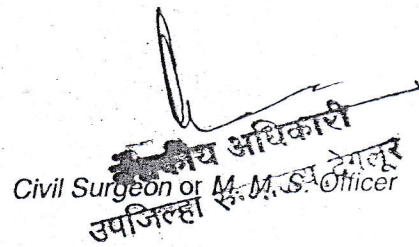 वैद्यकीय अधिकारी
Civil Surgeon or M. M. S. Officer
उपजिल्हा रुग्णालय देगलूर